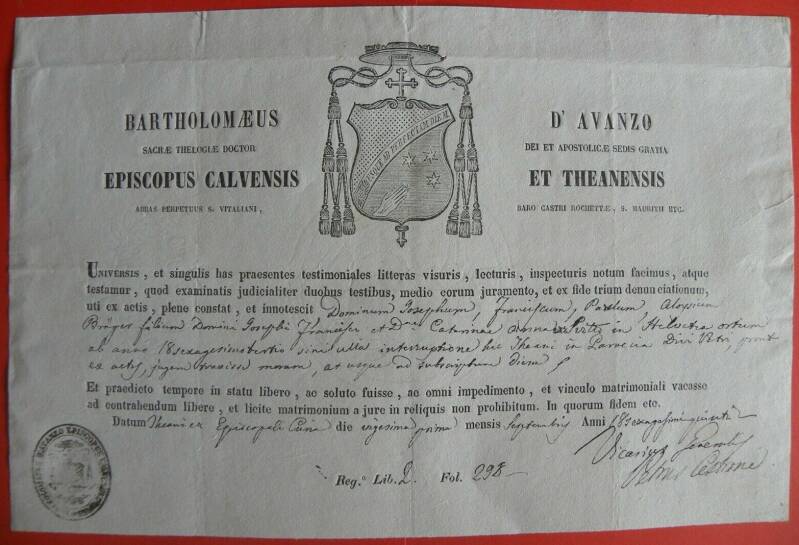 BARTHOLOMÆUS D' AVANZO
SACRÆ THELOGIÆ DOCTOR DEI ET APOSTOLICÆ SEDIS GRATIA
EPISCOPUS CALVENSIS ET THEANENSIS
ABBAS PERPETUUS S. VITALIANI, BARO CASTRI ROCHETTÆ, S. MAURITII ETC.
USQUE AD PERFECTAM DIEM
UNIVERSIS, et singulis has praesentes testimoniales litteras visuris, lecturis, inspecturis notum facimus, atque
testamur, quod examinatis judicialiter duobus testibus, medio eorum juramento, et ex fide trium denunciationum,
uti ex actis, plene constat, et innotescit Dominum Josephum, Franciscum, Paulum, Aloysium
filium Domini Josephi Francisci et Catarinae in Helvetia ortum
ab anno 18sexagesimotertio sine ulla interruptione hic Theani in Paroecia Divi Petri prout
ex actis, moram, at usque ad subscriptum diem
Et praedicto tempore in statu libero, ac soluto fuisse, ac omni impedimento, et vinculo matrimoniali vacasse
ad contrahendum libere, et licite matrimonium a jure in reliquis non prohibitum. In quorum fidem etc.
Datum Theani ex Episcopali Curia die vigesima prima mensis Septembris Anni 18sexagesimi quinti
Vicarius
Reg.º Lib. 2. Fol. 298
Petrus